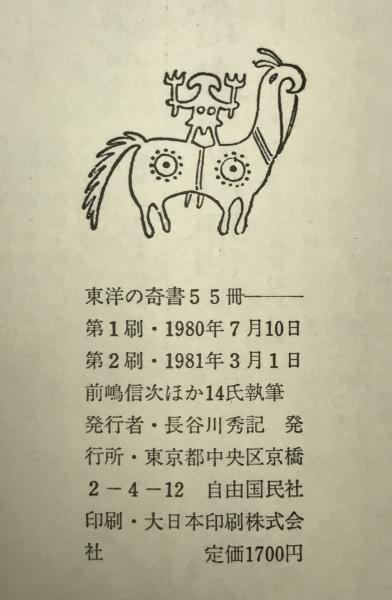 東洋の奇書55冊――
第1刷・1980年7月10日
第2刷・1981年3月1日
前嶋信次ほか14氏執筆
発行者・長谷川秀記 発
行所・東京都中央区京橋
2-4-12 自由国民社
印刷・大日本印刷株式会
社 定価1700円